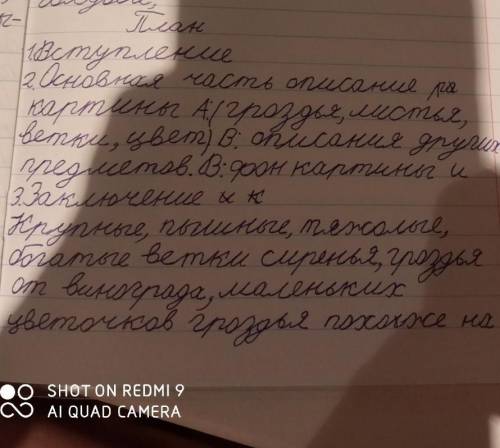 План
1.Вступление
2.Основная часть описание ра
картины А:(гроздья,листья,
ветки,цвет) В: описания других
предметов.В:фон картины и
3.Заключение и к
Крупные, пышные, тяжолые,
богатые ветки сиренья,гроздья
от винограда,маленьких
цветочков гроздья похожже на
SHOT ON REDMI 9
AI QUAD CAMERA